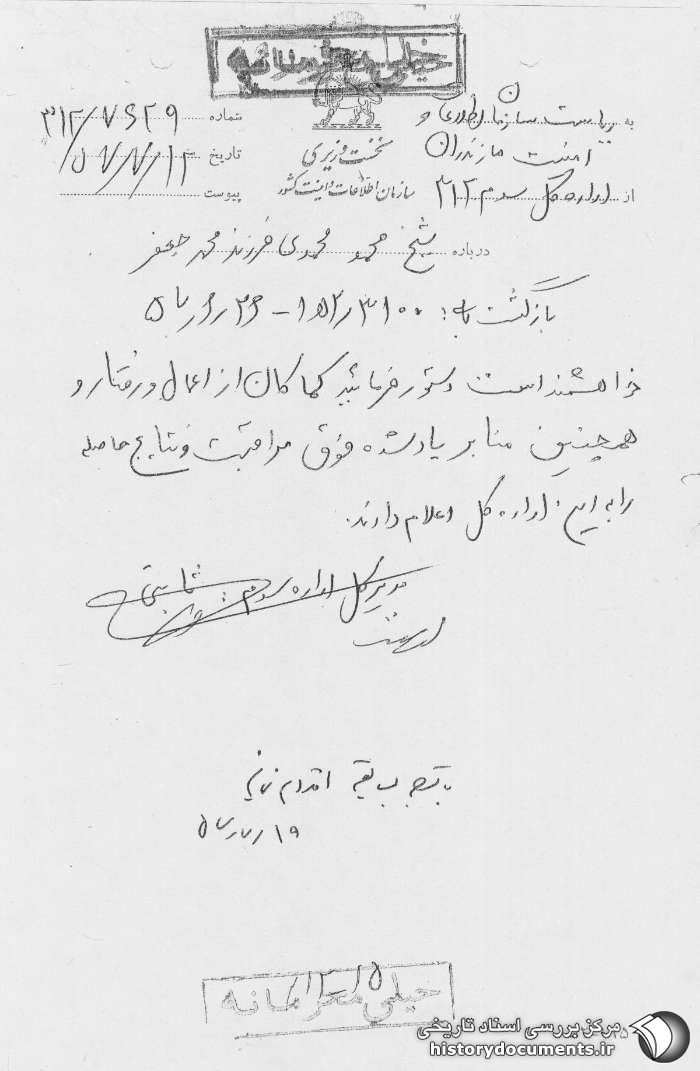 خیلی محرمانه
به ریاست سازمان اطلاعات و
امنیت مازندران
از اداره کل سوم ۳۱۲
نخست وزیری
سازمان اطلاعات و امنیت کشور
شماره ۳۱۲/۷۶۲۹
تاریخ ۵۷/۷/۱۲
پیوست
درباره شیخ محمود محمدی فرزند محمد جعفر
بازگشت به:
خواهشمند است دستور فرمائید کماکان از اعمال و رفتار و
همچنین منابر یاد شده فوق مراقبت و نتایج حاصله
را به این اداره کل اعلام دارند.
مدیر کل اداره سوم . ثابتی
با توجه بسابقه اقدام نمائید
خیلی محرمانه
مرکز بررسی اسناد تاریخی
historydocuments.ir